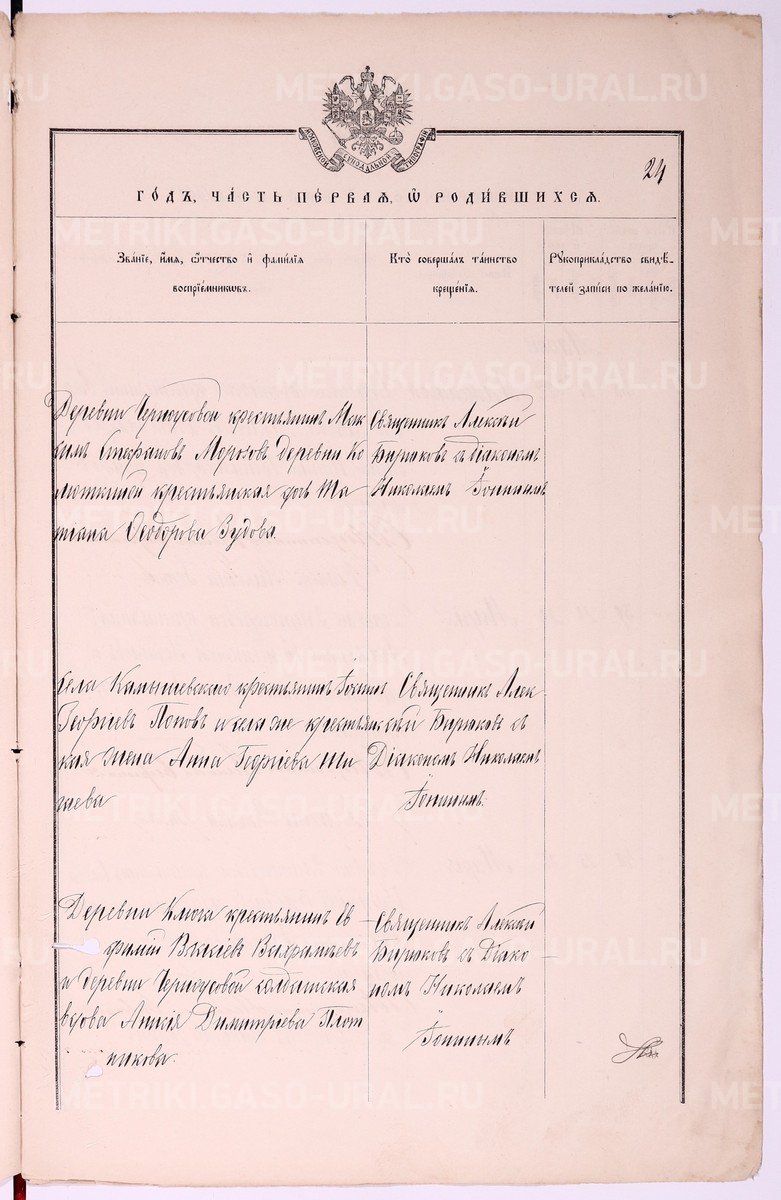 METRIKI.GASO-URAL.RU
МОСКОВСКОЙ СѴНОДАЛЬНОЙ ТИПОГРАФІИ
24
ГО́ДЪ, ЧА́СТЬ ПЕ́РВАѦ, Ѡ҆ РОДИ́ВШИХСѦ.
Зва́нїе, и҆́мѧ, ѻ҆́тчество и҆ фами́лїѧ
воспрїе́мникѡвъ.
Кто̀ соверша́лъ та́инство
креще́нїѧ.
Рꙋкоприкла́дство свидѣ́-
телей за́писи по жела́нїю.
Деревни Черноусовой крестьянинъ Мак
симъ Стефановъ Морозовъ Деревни Ко
лоткиной крестьянская дочь Та
тіана Ѳеодорова Зудова.
Священникъ Алексѣй
Бирюковъ съ діакономъ
Николаемъ Іонинымъ
Села Камышевскаго крестьянинъ
Георгіевъ Поповъ и села же крестьян
ская жена Анна Георгіева Ши
таева
Священникъ Алек
сѣй Бирюковъ съ
Діакономъ Николаемъ
Іонинымъ.
Деревни Ключа крестьянинъ Ев
фимій Власіевъ Вахрамѣевъ
и деревни Черноусовой солдатская
вдова Анисія Димитріева Плот
никова.
Священникъ Алексѣй
Бирюковъ съ Діако-
номъ Николаемъ
Іонинымъ